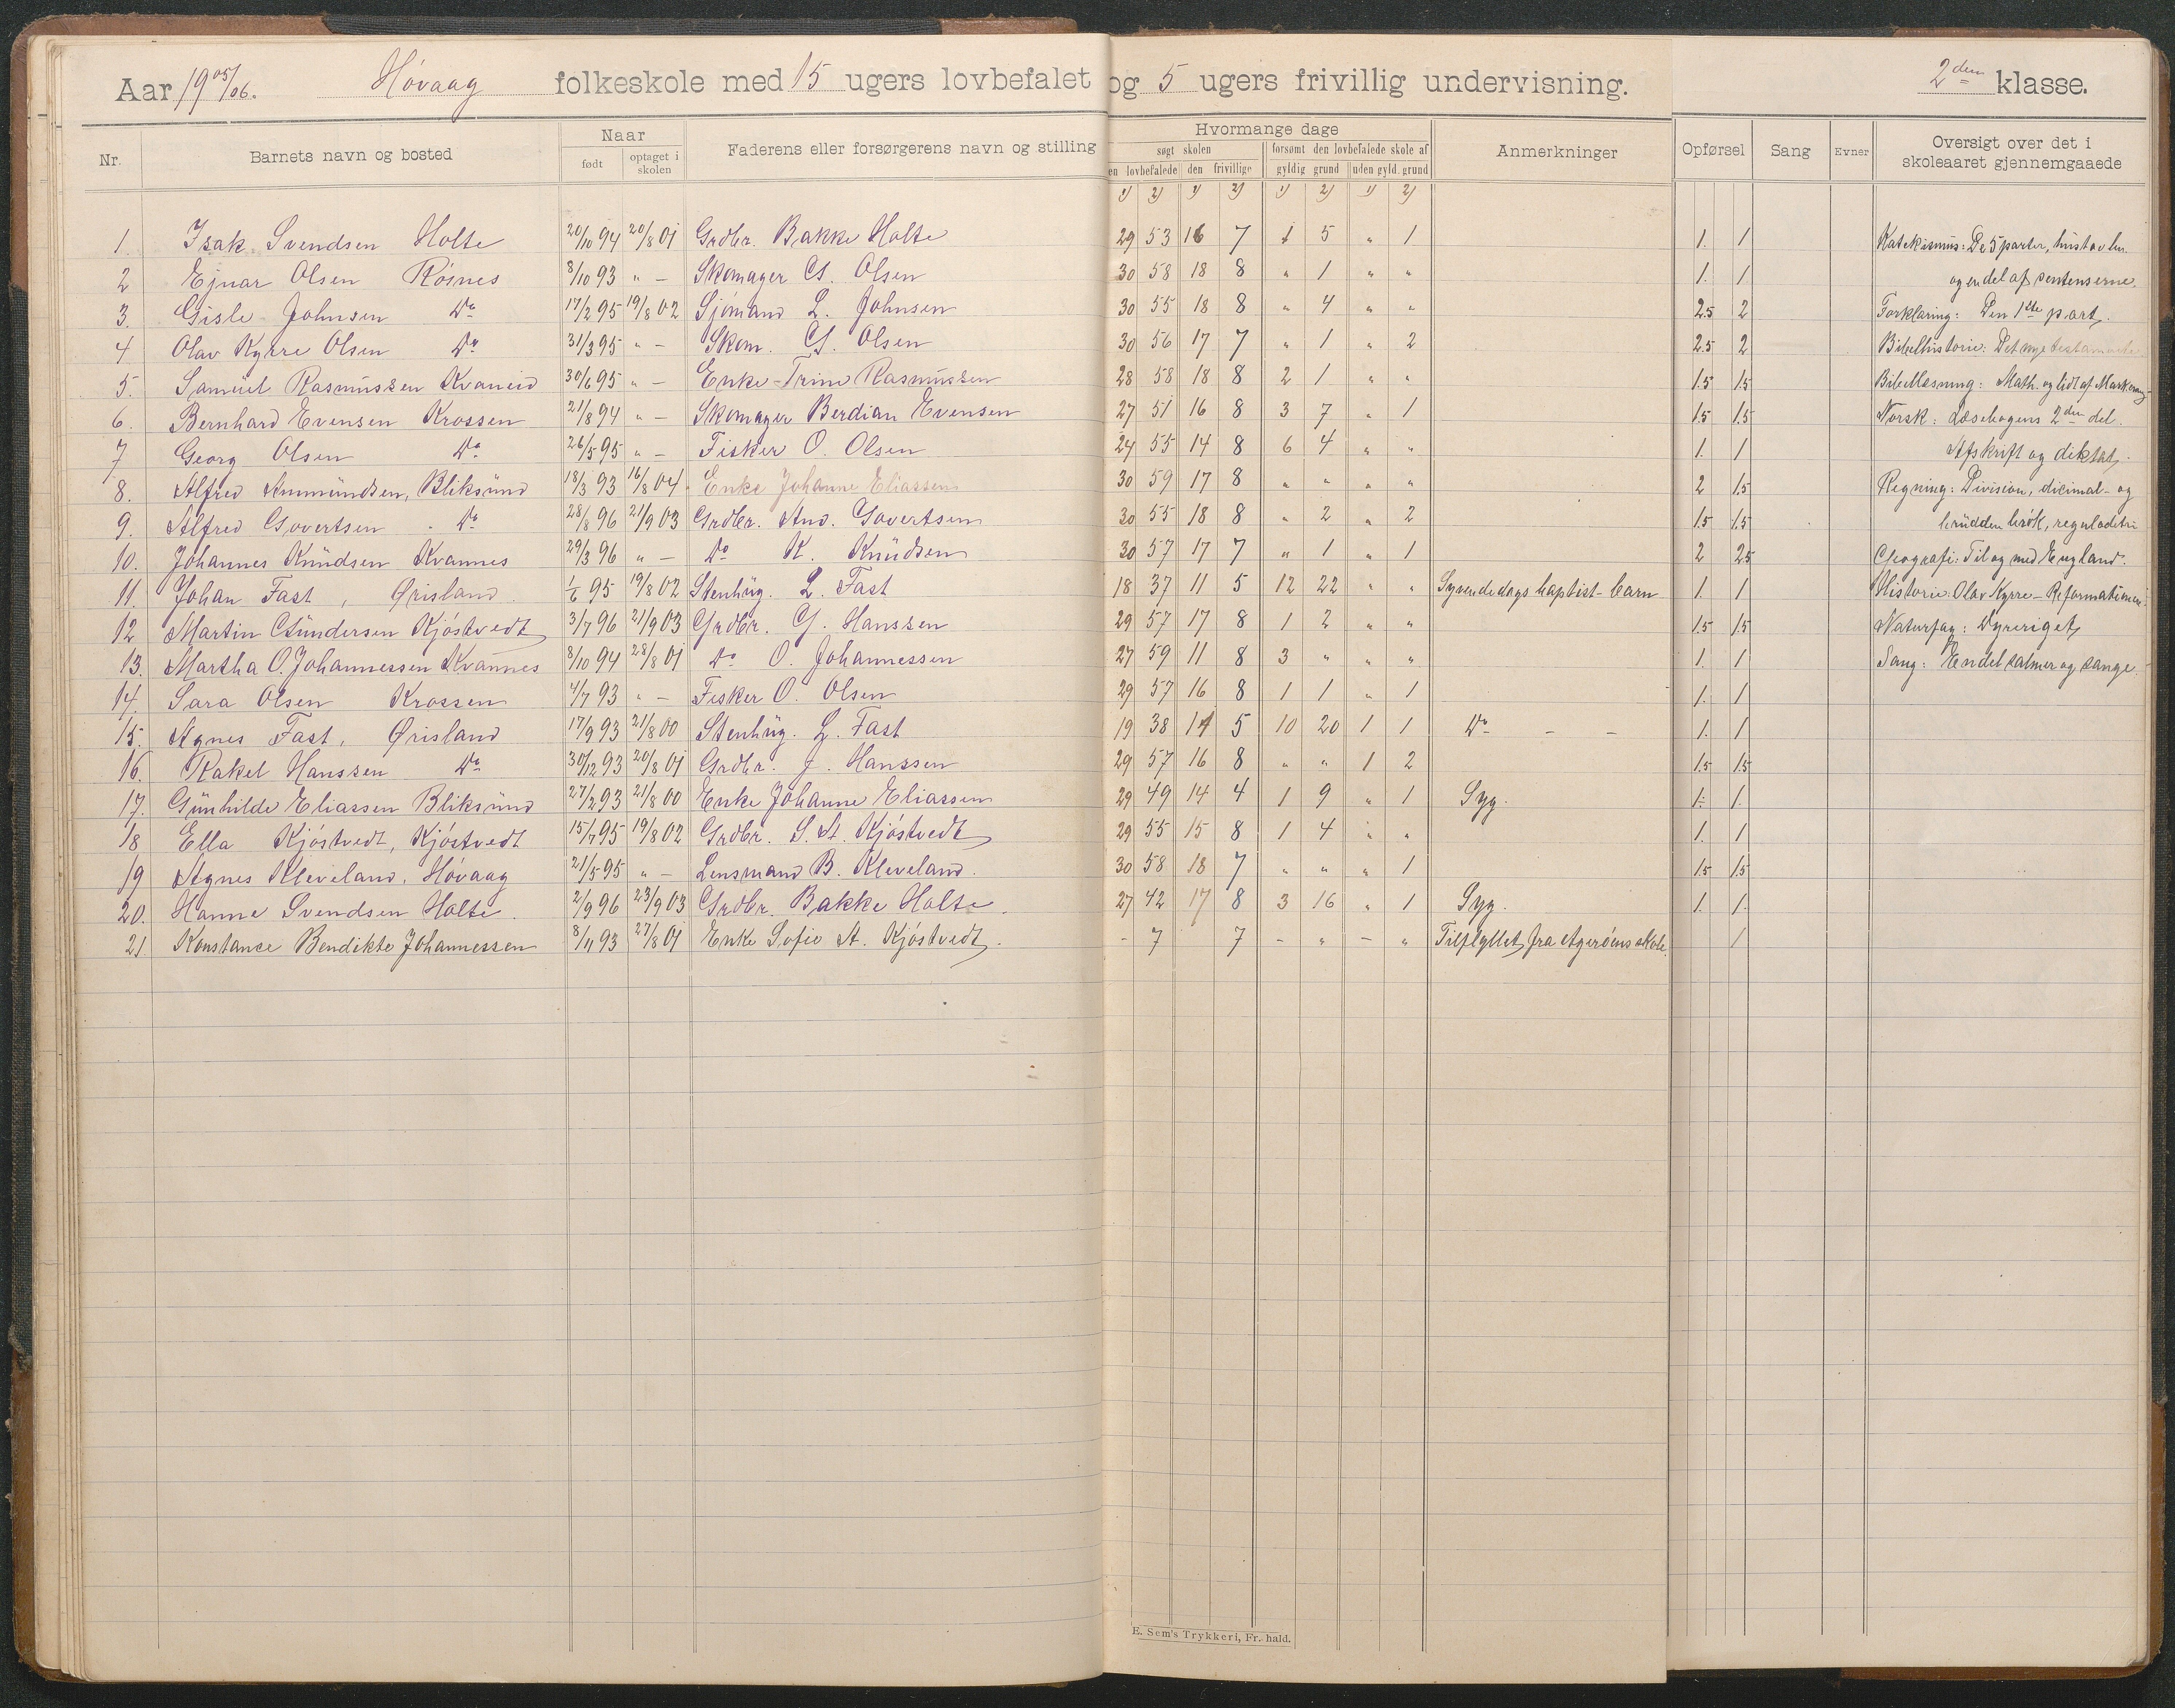 Aar 1905/06. Høvaag folkeskole med 15 ugers lovbefalet og 5 ugers frivillig undervisning. 2den klasse.
Nr. Barnets navn og bosted Naar Faderens eller forsørgerens navn og stilling Hvormange dage Anmerkninger Opførsel Sang Evner Oversigt over det i skoleaaret gjennemgaaede
født optaget i skolen søgt skolen forsømt den lovbefalede skole af
en lovbefalede den frivillige gyldig grund uden gyld. grund
1) 2) 1) 2) 1) 2) 1) 2)
1. Isak Svendsen Holte 20/10 94 20/8 01 Grdbr. Bakke Holte 29 53 16 7 1 5 " 1 1. 1 Katekismus: De 5 parter, hustavlen
2 Ejnar Olsen Røsnes 8/10 93 " - Skomager G. Olsen 30 58 18 8 " 1 " " 1. 1. og en del af sentenserne.
3. Gisle Johnsen Do 17/2 95 19/8 02 Sjømand L. Johnsen 30 55 18 8 " 4 " " 2.5 2 Forklaring: Den 1ste part.
4 Olav Kyrre Olsen Do 31/3 95 " - Skom. G. Olsen 30 56 17 7 " 1 " 2 2.5 2 Bibelhistorie: Det nye testamente
5. Samuel Rasmussen Kvaneid 30/6 95 " - Enke Trine Rasmussen 28 58 18 8 2 1 " " 1.5 1.5 Bibellæsning: Math. og lidt af Mark.
6. Bernhard Evensen Krossen 21/8 94 " - Skomager Berdian Evensen 27 51 16 8 3 7 " 1 1.5 1.5 Norsk: Læsebogens 2den del.
7 Georg Olsen Do 26/5 95 " - Fisker O. Olsen 24 55 14 8 6 4 " " 1. 1 Afskrift og diktat.
8. Alfred Ammundsen, Bliksund 18/3 93 16/8 04 Enke Johanne Eliassen 30 59 17 8 " " " " 2 1.5 Regning: Division, dicimal- og
9. Alfred Govertsen Do 28/8 96 21/9 03 Grdbr. And. Govertsen 30 55 18 8 " 2 " 2 1.5 1.5 brudden brøk, reguladetri
10. Johannes Knudsen Kvannes 29/3 96 " - Do K. Knudsen 30 57 17 7 " 1 " 1 2 2.5 Geografi: Til og med England.
11. Johan Fast, Ørisland 1/6 95 19/8 02 Stenhug. L. Fast 18 37 11 5 12 22 " " Syvendedags baptist-barn 1. 1 Historie: Olav Kyrre - Reformationen.
12 Martin Gundersen Kjøstvedt 3/7 96 21/9 03 Grdbr. G. Hanssen 29 57 17 8 1 2 " " 1.5 1.5 Naturfag: Dyreriget
13. Martha O. Johannessen Kvannes 8/10 94 28/8 01 Do O. Johannessen 27 59 11 8 3 " " " 1. 1 Sang: Endel salmer og sange.
14. Sara Olsen Krossen 4/7 93 " - Fisker O. Olsen 29 57 16 8 1 1 " 1 1. 1
15. Agnes Fast, Ørisland 17/9 93 21/8 00 Stenhug. L. Fast 19 38 14 5 10 20 1 1 Do - - 1. 1
16. Rakel Hanssen Do 30/12 93 20/8 01 Grdbr. J. Hanssen 29 57 16 8 " " 1 2 1.5 1.5
17. Gunhilde Eliassen Bliksund 27/2 93 21/8 00 Enke Johanne Eliassen 29 49 14 4 1 9 " 1 Syg. 1. 1.
18 Ella Kjøstvedt, Kjøstvedt 15/7 95 19/8 02 Grdbr. S. A. Kjøstvedt 29 55 15 8 1 4 " " 1. 1
19 Agnes Kleveland, Høvaag 21/5 95 " - Lensmand B. Kleveland. 30 58 18 7 " " " 1 1.5 1.5
20. Hanne Svendsen Holte 2/9 96 23/9 03 Grdbr. Bakke Holte 27 42 17 8 3 16 " 1 Syg. 1. 1.
21. Konstance Bendikte Johannessen 8/11 93 27/8 01 Enke Sofie A. Kjøstvedt. - 7 7 - " - " Tilflyttet fra Agerøens skole. 1
E. Sem's Trykkeri, Fr.hald.